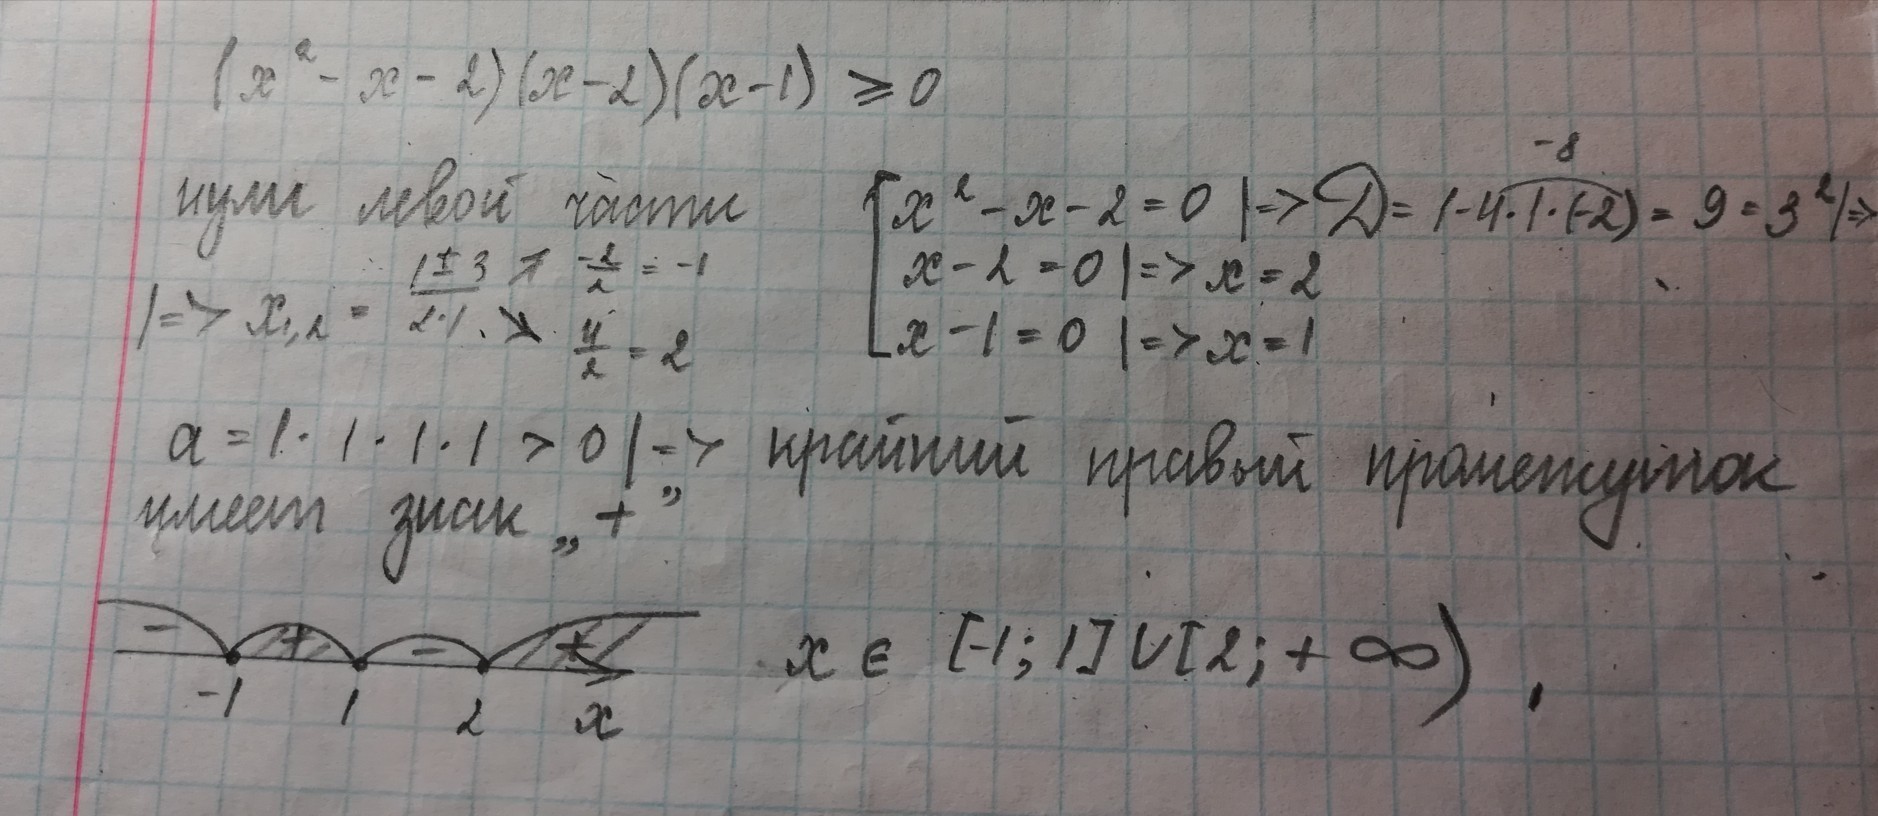 (x² - x - 2)(x-2)(x-1) ⩾ 0
нули левой части [x² - x - 2 = 0 |=> D = 1-4·1·(-2) = 9 = 3² |=>
-8
x - 2 = 0 |=> x = 2
x - 1 = 0 |=> x = 1
|=> x₁,₂ = (1±3)/(2·1) ↗ -2/2 = -1
↘ 4/2 = 2
a = 1·1·1·1 > 0 |=> крайний правый промежуток
имеет знак „+”
- + - +
-1 1 2 x
x ∈ [-1; 1] ∪ [2; +∞).